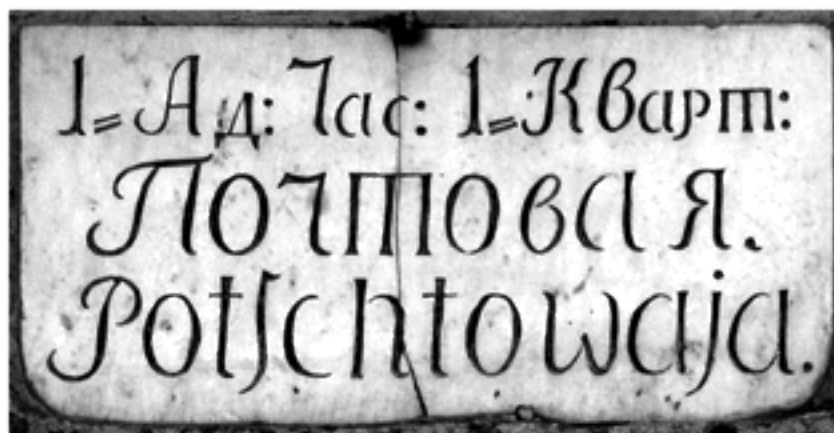 1=Ад: Час: 1=Кварт:
Почтовая.
Potſchtowaja.